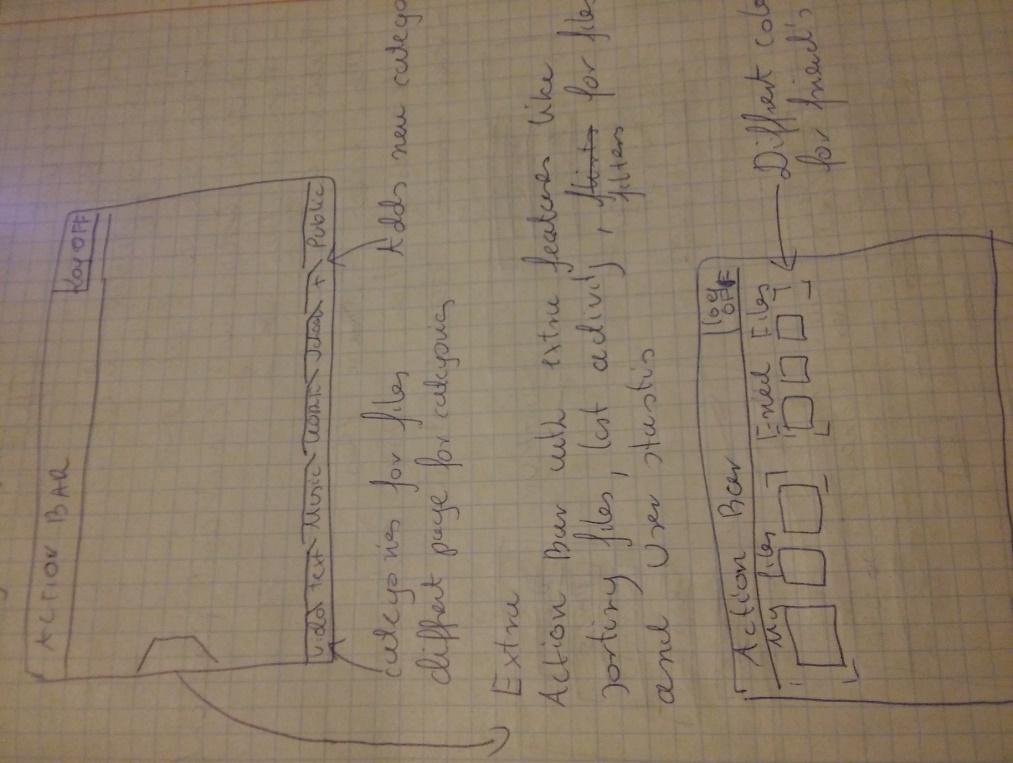 ACTION BAR
Log OFF
Video Text Music Work School + Public
Adds new catego
categories for files
diffrent page for categoris
Extra
Action Bar with extra features like
sorting files, last activity, filters for files
and User statis
Action Bar
log OFF
My files
Friend Files
Diffrent colo
for friend's